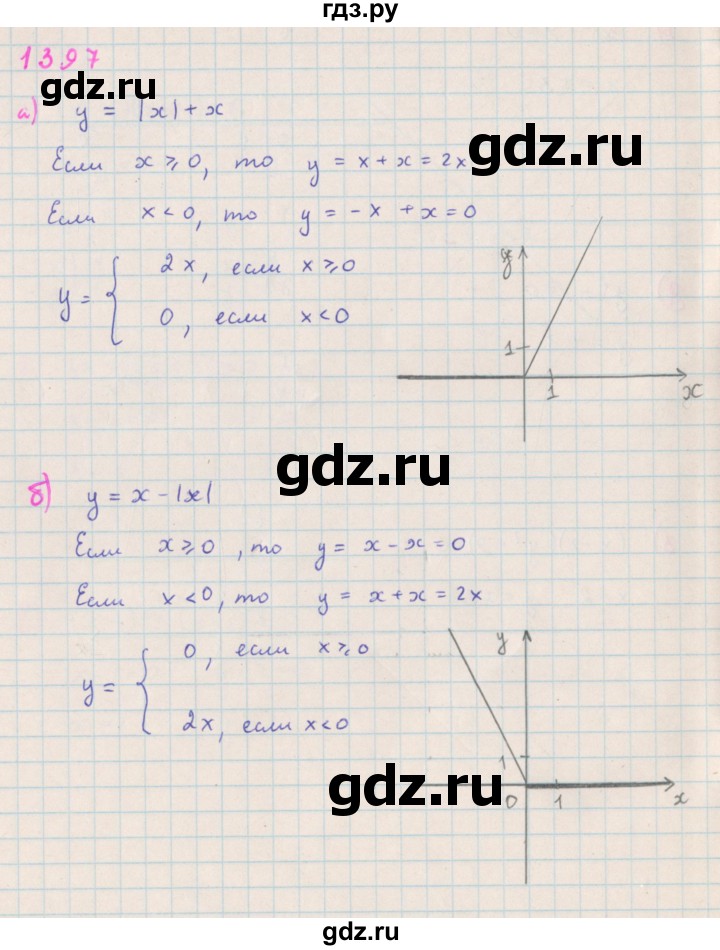 гдз.ру
1397
gdz.ru
а) y = |x| + x
Если x ⩾ 0, то y = x + x = 2x
gdz.ru
Если x < 0, то y = -x + x = 0
y = { 2x, если x ⩾ 0
0, если x < 0
y
1
1
x
gdz.ru
б) y = x - |x|
Если x ⩾ 0, то y = x - x = 0
Если x < 0, то y = x + x = 2x
y = { 0, если x ⩾ 0
2x, если x < 0
y
1
0
1
x
gdz.ru
gdz.ru
гдз.ру